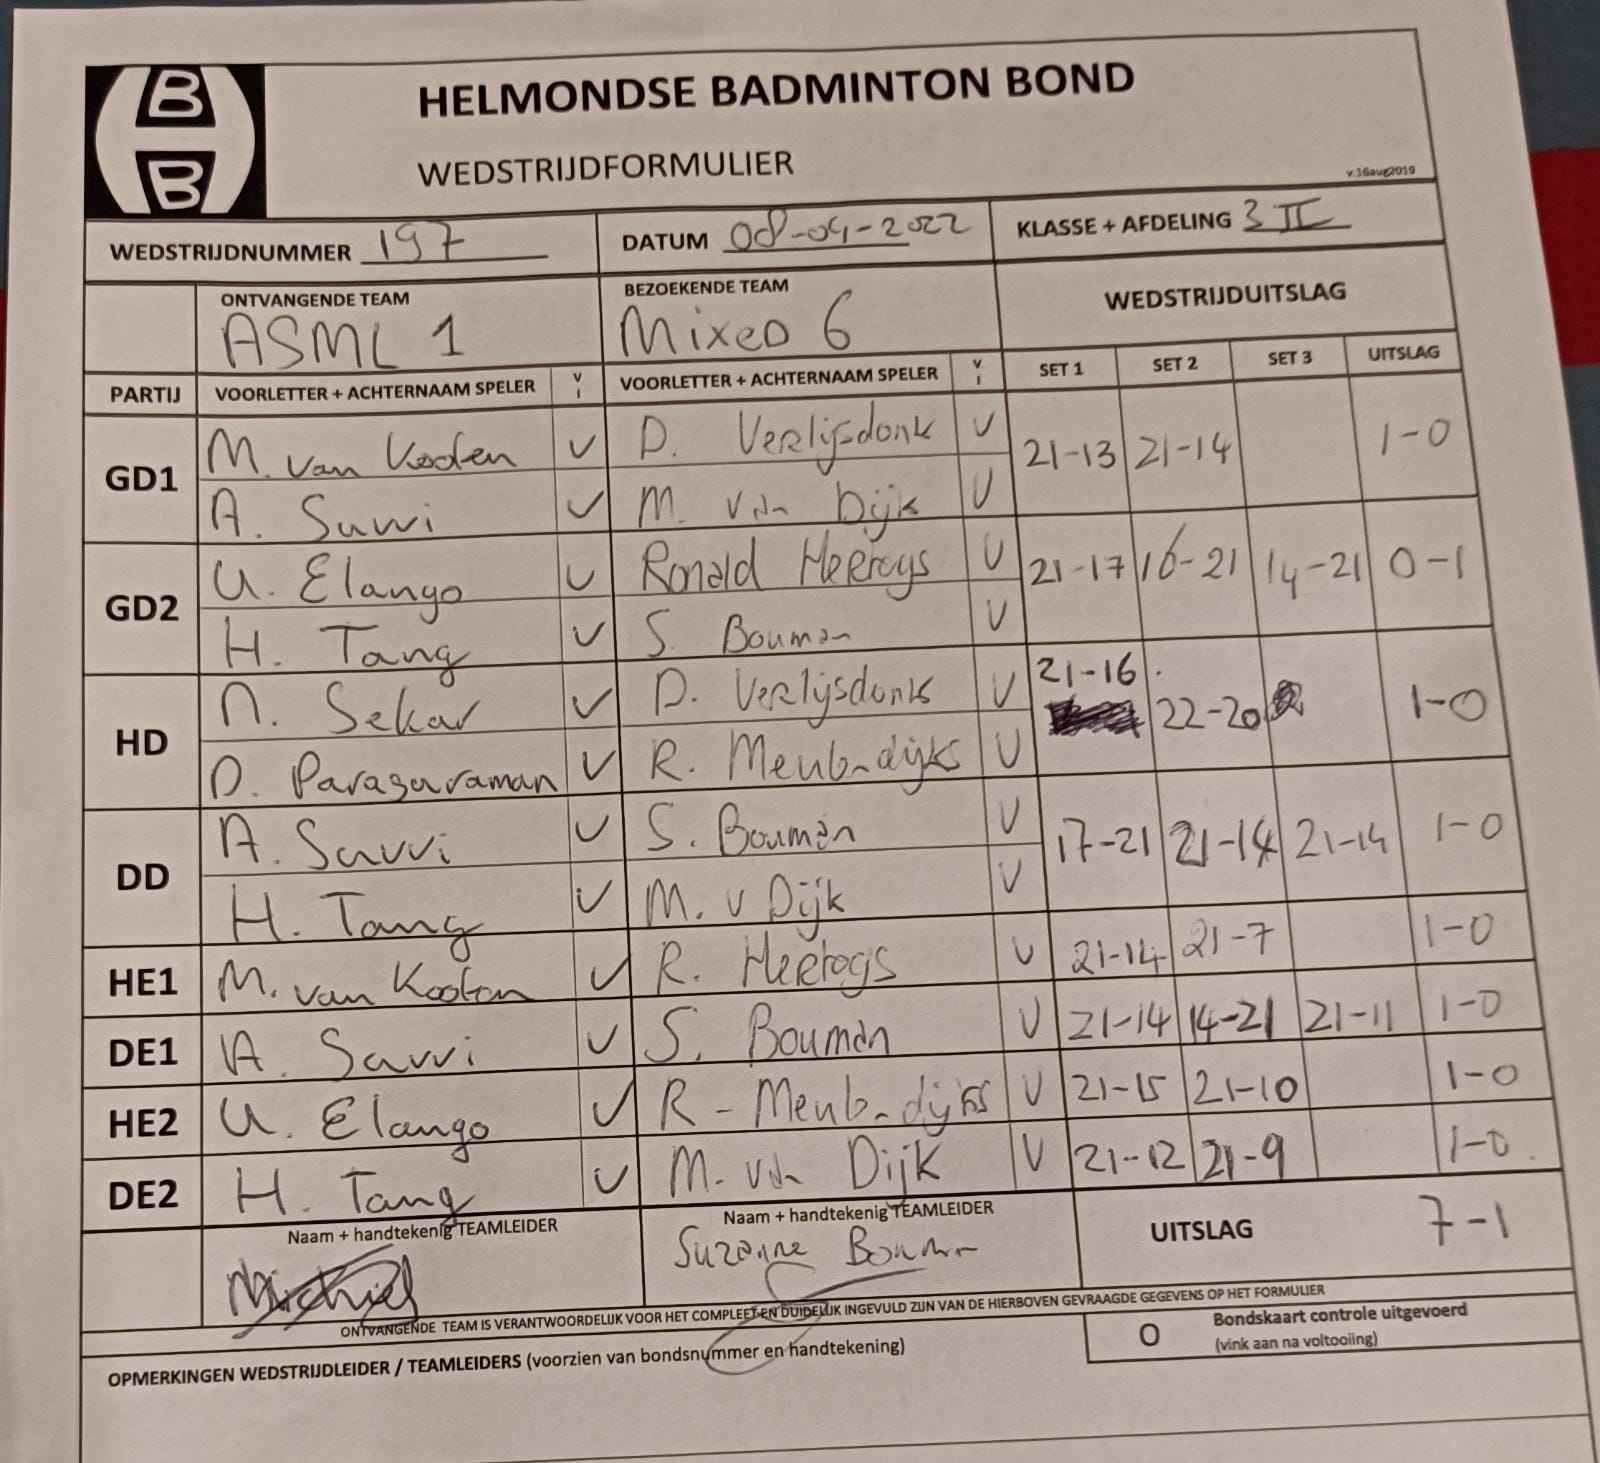 B
B
HELMONDSE BADMINTON BOND
WEDSTRIJDFORMULIER
v.16aug2019
WEDSTRIJDNUMMER 197 DATUM 08-04-2022 KLASSE + AFDELING 3 II
ONTVANGENDE TEAM BEZOEKENDE TEAM WEDSTRIJDUITSLAG
ASML 1 Mixed 6
PARTIJ VOORLETTER + ACHTERNAAM SPELER V I VOORLETTER + ACHTERNAAM SPELER V I SET 1 SET 2 SET 3 UITSLAG
GD1 M. van Kooten V D. Verlijsdonk V 21-13 21-14 1-0
A. Savvi V M. van Dijk V
GD2 U. Elango V Ronald Hertogs V 21-17 16-21 14-21 0-1
H. Tang V S. Bouman V
HD N. Sekar V D. Verlijsdonk V 21-16 22-20 1-0
D. Parasuraman V R. V
DD A. Savvi V S. Bouman V 17-21 21-14 21-14 1-0
H. Tang V M. v Dijk V
HE1 M. van Kooten V R. Hertogs V 21-14 21-7 1-0
DE1 A. Savvi V S. Bouman V 21-14 14-21 21-11 1-0
HE2 U. Elango V R - V 21-15 21-10 1-0
DE2 H. Tang V M. van Dijk V 21-12 21-9 1-0
Naam + handtekenig TEAMLEIDER Naam + handtekenig TEAMLEIDER UITSLAG 7-1
Michiel Suzanne Bouman
ONTVANGENDE TEAM IS VERANTWOORDELIJK VOOR HET COMPLEET EN DUIDELIJK INGEVULD ZIJN VAN DE HIERBOVEN GEVRAAGDE GEGEVENS OP HET FORMULIER
O Bondskaart controle uitgevoerd
(vink aan na voltooiing)
OPMERKINGEN WEDSTRIJDLEIDER / TEAMLEIDERS (voorzien van bondsnummer en handtekening)